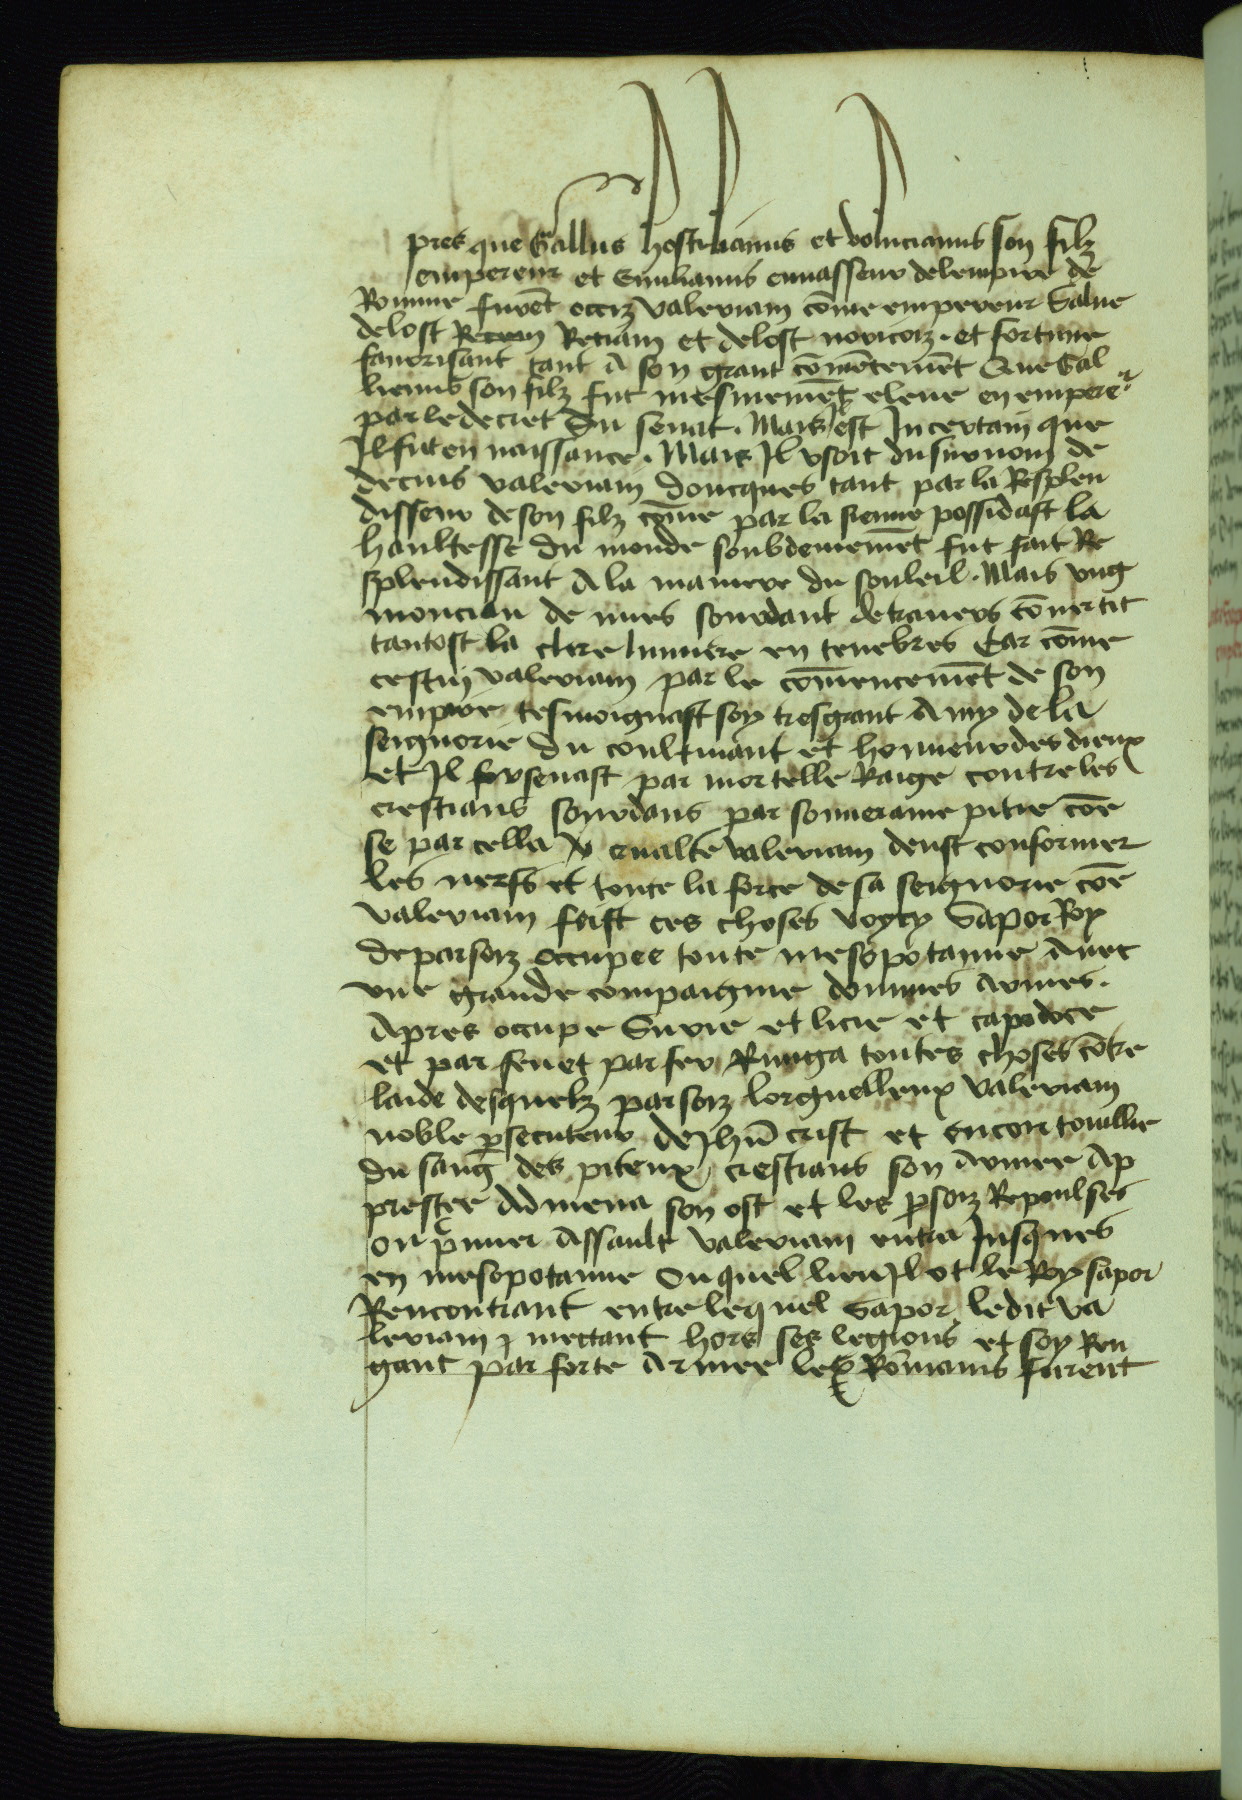 pres que Gallus hostilianus et volucianus son filz
empereur et Emilianus envasseur delempire de
Romme furẽt occiz valeriam cõme empereur Salue
delost Recem Reciam et delost noricoiz. et fortune
fauorisant tant A son grant cõmẽcemẽt Que Gal
lienus son filz fut mesmemẽt eleue en empereʳ
par le decret Du senat. Mais est Incertain que
Il fut en naissance. Mais Il vsoit du surnom de
decius valeriam doncques tant par la Resplen
disseur de son filz cõme par la sienne possidast la
haultesse du monde soubdenemẽt fut fait Re
splendissant A la maniere du souleil. Mais vng
moncian de nues sourdant de trauers cõuertit
tantost la clere lumiere en tenebres Car cõme
cestuy valeriam par le cõmencemẽt de son
empire tesmoignast soy tresgrant Amy de la
seignorie du coultiuant et honneur des dieux
et Il forsenast par mortelle Raige contre les
crestians sourdans par souueraine pitie cõe
se par cella crualte valeriam deust conformer
les nerfs et toute la force de sa seignorie cõe
valeriam feist ces choses voycy Sapor Roy
de parsoiz occupee toute mesopotamie Auec
vne grande compaignie dommes armes.
Apres occupe Surie et licie et capodoce
et par feu et par fer Runga toutes choses cõtre
laide desquelz parsoiz lorguelleux valeriam
noble ꝑsecuteur de Jhũ crist et encor touillie
du sang des piteux crestians son armee Ap
prestee Admena son ost et les ꝑsoiz Repoulses
ou pͥmier Assault valeriam entra Jusques
en mesopotamie Ou quel lieu Il ot le Roy sapor
Rencontrant entre lequel Sapor ledit va
leriam mectant hors ses legions et soy Ren
gant par forte Armee les Romains furent